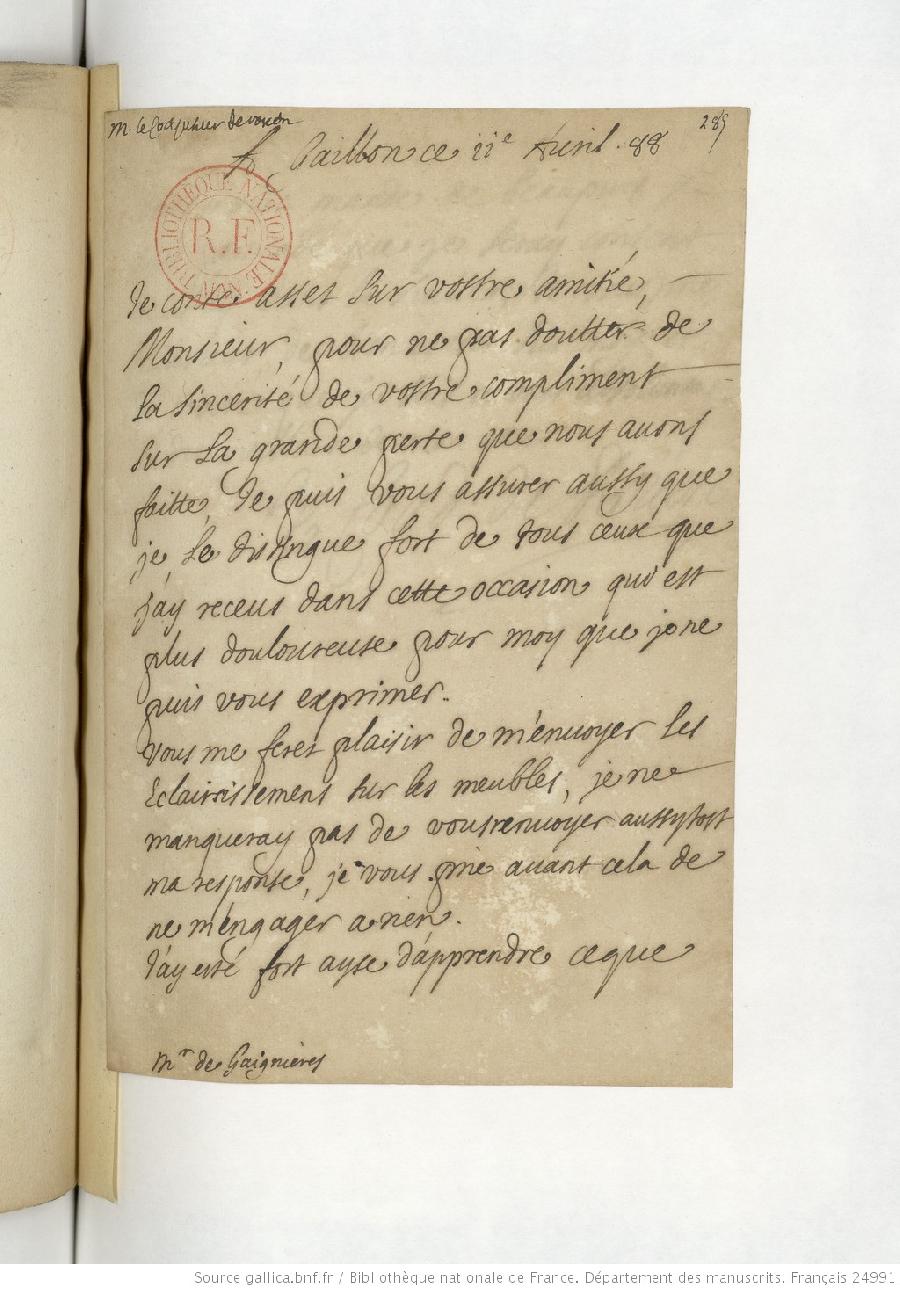 M le Coadjuteur de rouen
285
A Gaillon ce 11e Auril. 88
BIBLIOTHÈQUE NATIONALE MAN.
R.F.
Je conte asses sur vostre amitié,
Monsieur, pour ne pas doutter de
la sincerité de vostre compliment
sur la grande perte que nous auons
faitte, Je puis vous assurer aussy que
je le distingue fort de tous ceux que
j'ay receus dans cette occasion qui est
plus douloureuse pour moy que je ne
puis vous exprimer.
vous me feres plaisir de m'enuoyer les
Eclaircissemens sur les meubles, je ne
manqueray pas de vous renuoyer aussytost
ma response, je vous prie auant cela de
ne m'engager a rien.
J'ay esté fort ayse d'apprendre ce que
Mr de Gaignieres
Source gallica.bnf.fr / Bibliothèque nationale de France. Département des manuscrits. Français 24991